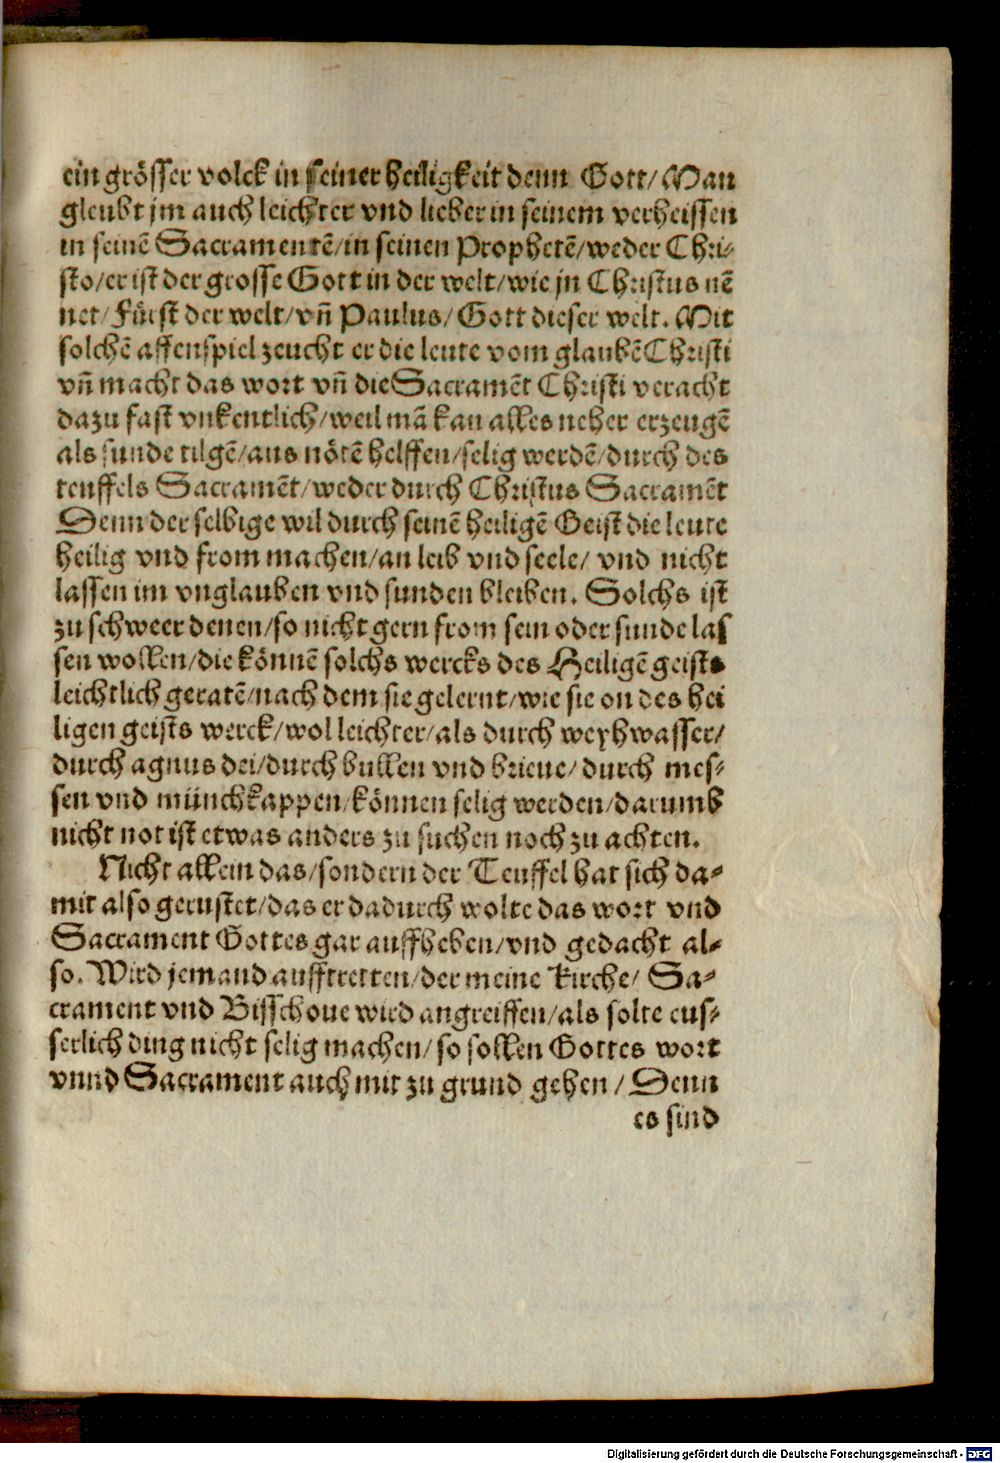 ein grösser volck in seiner heiligkeit denn Gott/Man
gleubt jm auch leichter vnd lieber in seinem verheissen
in seinē Sacramentē/in seinen Prophetē/weder Chri-
sto/er ist der grosse Gott in der welt/wie jn Christus nē
net/Fürst der welt/vn̄ Paulus/Gott dieser welt. Mit
solchē affenspiel zeucht er die leute vom glaubē Christi
vn̄ macht das wort vn̄ die Sacramēt Christi veracht
dazu fast vnkentlich/weil mā kan alles neher erzeugē
als sunde tilgē/aus nötē helffen/selig werdē/durch des
teuffels Sacramēt/weder durch Christus Sacramēt
Denn der selbige wil durch seinē heiligē Geist die leute
heilig vnd from machen/an leib vnd seele/ vnd nicht
lassen im vnglauben vnd sunden bleiben. Solchs ist
zu schweer denen/so nicht gern from sein oder sunde las
sen wollen/die könnē solchs wercks des Heiligē geists
leichtlich geratē/nach dem sie gelernt/wie sie on des hei
ligen geists werck/wol leichter/als durch weyhwasser/
durch agnus dei/durch bullen vnd brieue/durch mes-
sen vnd münchkappen/können selig werden/darumb
nicht not ist etwas anders zu suchen noch zu achten.
Nicht allein das/sondern der Teuffel hat sich da-
mit also gerustet/das er dadurch wolte das wort vnd
Sacrament Gottes gar auffheben/vnd gedacht al-
so. Wird jemand aufftretten/der meine Kirche/ Sa-
crament vnd Bisschoue wird angreiffen/als solte eus-
serlich ding nicht selig machen/so sollen Gottes wort
vnnd Sacrament auch mit zu grund gehen/ Denn
es sind
Digitalisierung gefördert durch die Deutsche Forschungsgemeinschaft - DFG